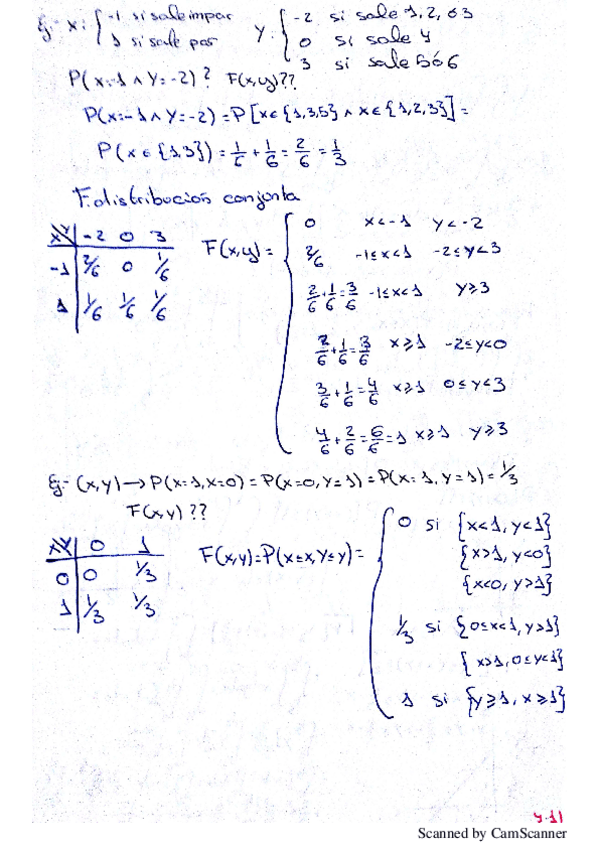 Ej- X: { -1 si sale impar    Y: { -2 si sale 1, 2, ó 3
1 si sale par    0 si sale 4
3 si sale 5 ó 6
P(x=-1 ∧ Y=-2)? F(x,y)??
P(x=-1 ∧ Y=-2) = P[x∈{1,3,5} ∧ x∈{1,2,3}] =
P(x∈{1,3}) = 1/6 + 1/6 = 2/6 = 1/3
F. distribucion conjunta
X\Y | -2 0 3
-1 | 2/6 0 1/6
1 | 1/6 1/6 1/6
F(x,y) = { 0    x<-1    y<-2
2/6    -1≤x<1    -2≤y<3
2/6 + 1/6 = 3/6    -1≤x<1    y≥3
2/6 + 1/6 = 3/6    x≥1    -2≤y<0
3/6 + 1/6 = 4/6    x≥1    0≤y<3
4/6 + 2/6 = 6/6 = 1    x≥1    y≥3
Ej- (x,y) → P(x=1, x=0) = P(x=0, y=1) = P(x=1, y=1) = 1/3
F(x,y)??
X\Y | 0 1
0 | 0 1/3
1 | 1/3 1/3
F(x,y) = P(x≤x, Y≤y) = { 0 si {x<1, y<1}
{x>1, y<0}
{x<0, y>1}
1/3 si {0≤x<1, y>1}
{x>1, 0≤y<1}
1 si {y≥1, x≥1}
4.11
Scanned by CamScanner